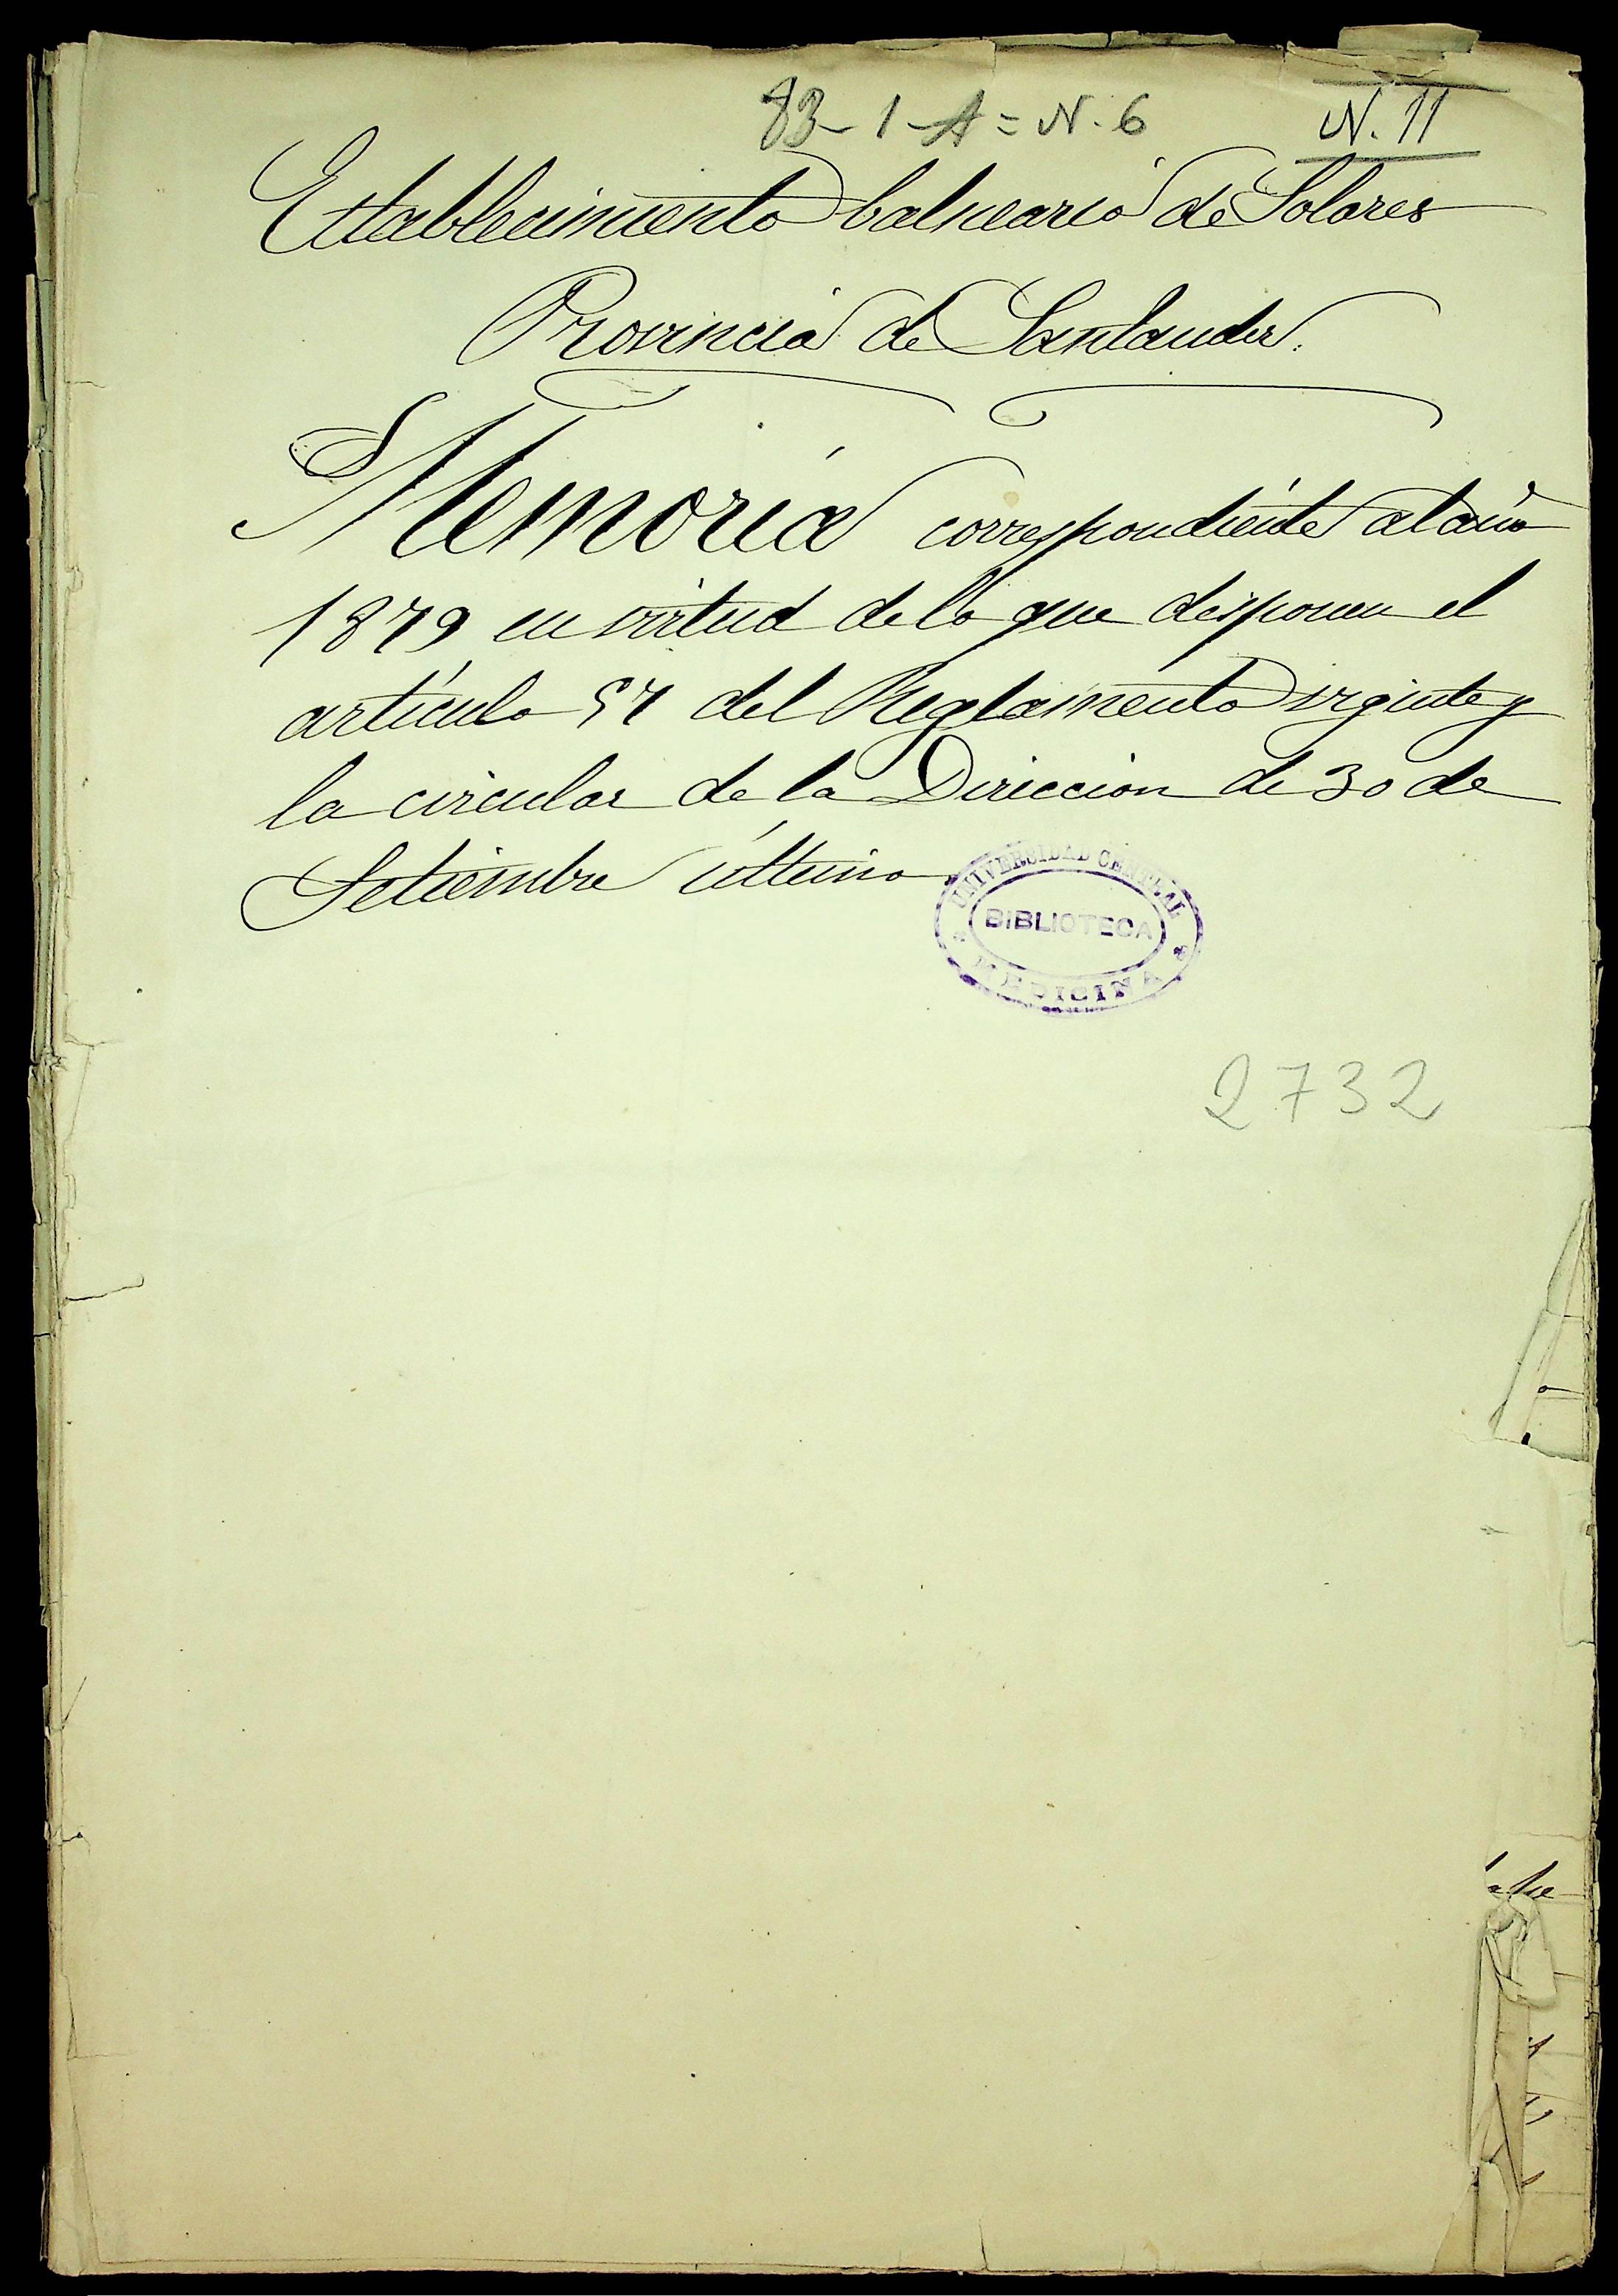 83-1-A = N. 6
N. 11
Establecimiento balneario de Solares
Provincia de Santander.
Memoria correspondiente al año
1879 en virtud de lo que disponen el
artículo 57 del Reglamento vigente y
la circular de la Direccion de 30 de
Setiembre último
UNIVERSIDAD CENTRAL
BIBLIOTECA
MEDICINA
2732